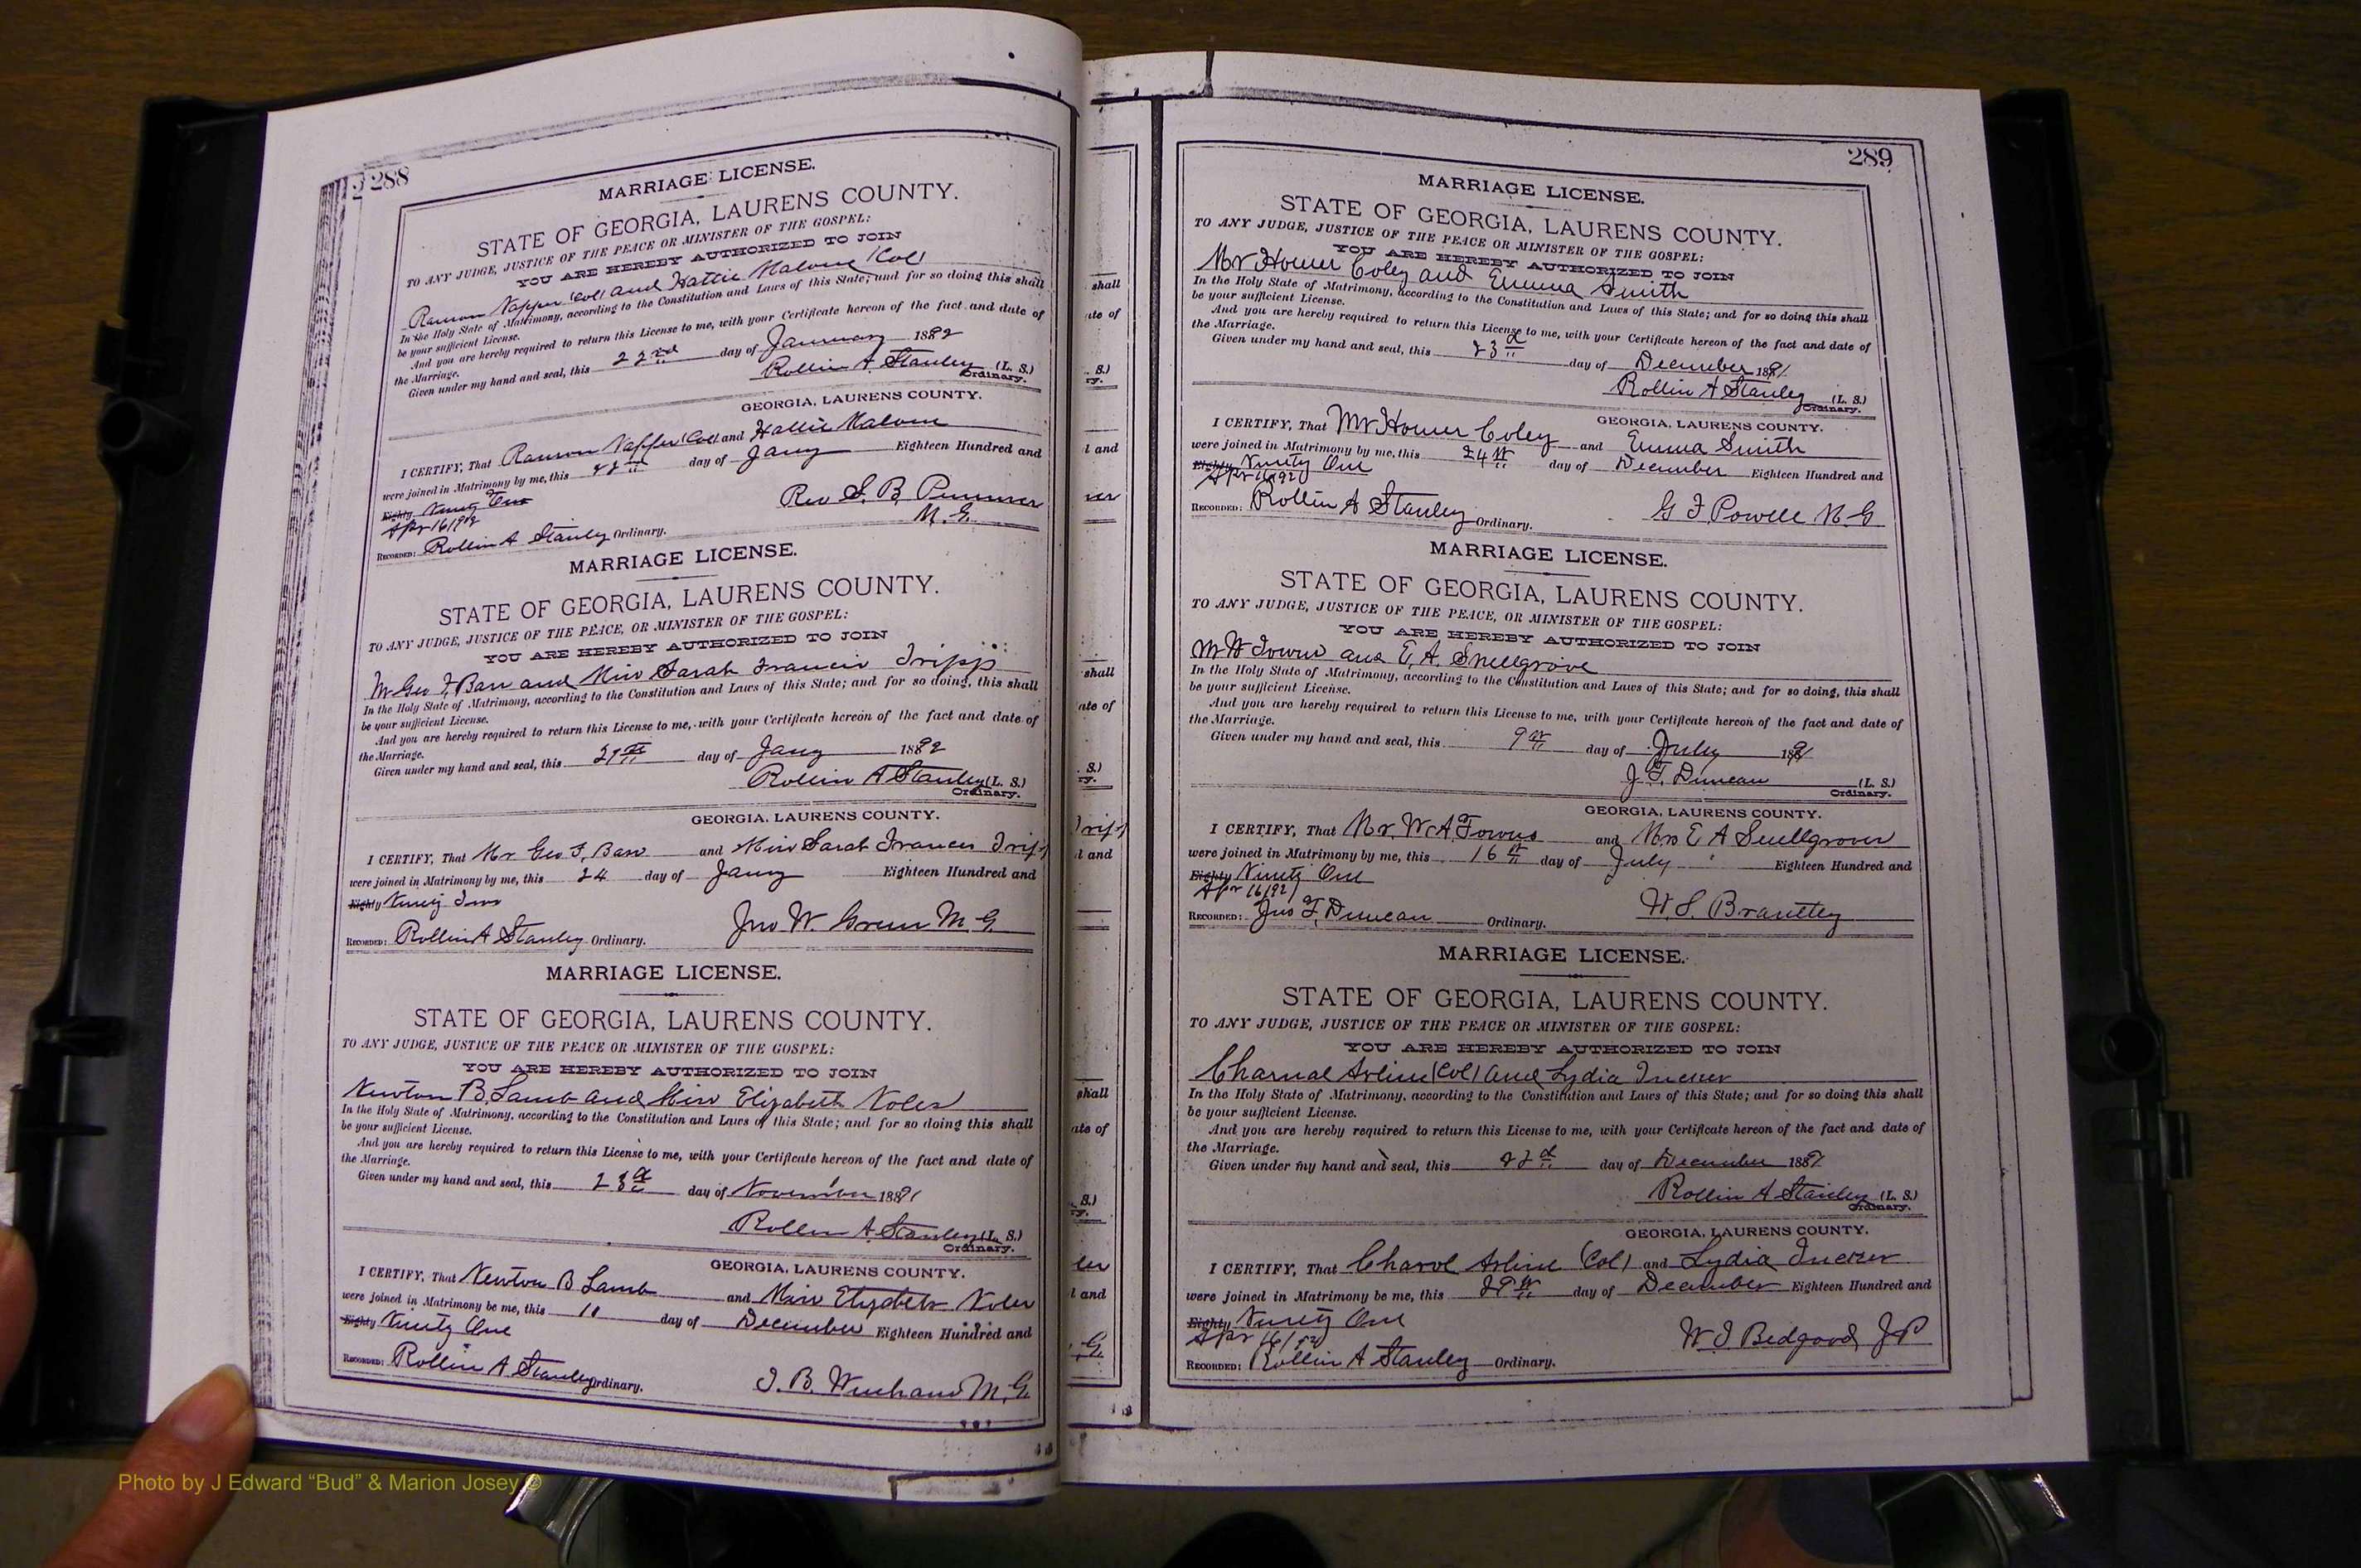 288
MARRIAGE LICENSE.
STATE OF GEORGIA, LAURENS COUNTY.
TO ANY JUDGE, JUSTICE OF THE PEACE OR MINISTER OF THE GOSPEL:
YOU ARE HEREBY AUTHORIZED TO JOIN
Ranson Napper (Col) and Hattie Malone (Col)
In the Holy State of Matrimony, according to the Constitution and Laws of this State; and for so doing this shall
be your sufficient License.
And you are hereby required to return this License to me, with your Certificate hereon of the fact and date of
the Marriage.
Given under my hand and seal, this 22nd day of January 1892
Rollin A Stanley (L. S.)
Ordinary.
GEORGIA, LAURENS COUNTY.
I CERTIFY, That Ranson Napper (Col) and Hattie Malone
were joined in Matrimony by me, this day of Jany Eighteen Hundred and
Eighty Ninety Two
Apr 16/92
Rev S. B.
M. G.
RECORDED: Rollin A Stanley Ordinary.
MARRIAGE LICENSE.
STATE OF GEORGIA, LAURENS COUNTY.
TO ANY JUDGE, JUSTICE OF THE PEACE, OR MINISTER OF THE GOSPEL:
YOU ARE HEREBY AUTHORIZED TO JOIN
Mr Geo F. Barr and Miss Sarah Francis Tripp
In the Holy State of Matrimony, according to the Constitution and Laws of this State; and for so doing, this shall
be your sufficient License.
And you are hereby required to return this License to me, with your Certificate hereon of the fact and date of
the Marriage.
Given under my hand and seal, this 21st day of Jany 1892
Rollin A Stanley (L. S.)
Ordinary.
GEORGIA, LAURENS COUNTY.
I CERTIFY, That Mr. Geo F. Barr and Miss Sarah Francis Tripp
were joined in Matrimony by me, this 24 day of Jany Eighteen Hundred and
Eighty Ninety Two
Jno W. Green M. G.
RECORDED: Rollin A Stanley Ordinary.
MARRIAGE LICENSE.
STATE OF GEORGIA, LAURENS COUNTY.
TO ANY JUDGE, JUSTICE OF THE PEACE OR MINISTER OF THE GOSPEL:
YOU ARE HEREBY AUTHORIZED TO JOIN
Newton B. Lamb and Miss Elizabeth Noles
In the Holy State of Matrimony, according to the Constitution and Laws of this State; and for so doing this shall
be your sufficient License.
And you are hereby required to return this License to me, with your Certificate hereon of the fact and date of
the Marriage.
Given under my hand and seal, this 23d day of November 1891
Rollin A. Stanley (L. S.)
Ordinary.
GEORGIA, LAURENS COUNTY.
I CERTIFY, That Newton B Lamb and Miss Elizabeth Noles
were joined in Matrimony be me, this day of December Eighteen Hundred and
Eighty Ninety One
RECORDED: Rollin A Stanley Ordinary.
M. G.
289
MARRIAGE LICENSE.
STATE OF GEORGIA, LAURENS COUNTY.
TO ANY JUDGE, JUSTICE OF THE PEACE OR MINISTER OF THE GOSPEL:
YOU ARE HEREBY AUTHORIZED TO JOIN
Mr Homer Coley and Emma Smith
In the Holy State of Matrimony, according to the Constitution and Laws of this State; and for so doing this shall
be your sufficient License.
And you are hereby required to return this License to me, with your Certificate hereon of the fact and date of
the Marriage.
Given under my hand and seal, this 23d day of December 1891
Rollin A Stanley (L. S.)
Ordinary.
GEORGIA, LAURENS COUNTY.
I CERTIFY, That Mr Homer Coley and Emma Smith
were joined in Matrimony by me, this 24th day of December Eighteen Hundred and
Eighty Ninety One
Apr 16/92
RECORDED: Rollin A Stanley Ordinary.
G F Powell M G
MARRIAGE LICENSE.
STATE OF GEORGIA, LAURENS COUNTY.
TO ANY JUDGE, JUSTICE OF THE PEACE, OR MINISTER OF THE GOSPEL:
YOU ARE HEREBY AUTHORIZED TO JOIN
and E. A. Snellgrove
In the Holy State of Matrimony, according to the Constitution and Laws of this State; and for so doing, this shall
be your sufficient License.
And you are hereby required to return this License to me, with your Certificate hereon of the fact and date of
the Marriage.
Given under my hand and seal, this 9th day of July 1891
J. F. Duncan (L. S.)
Ordinary.
GEORGIA, LAURENS COUNTY.
I CERTIFY, That Mr. W. A. Towns and Mrs E A Snellgrove
were joined in Matrimony by me, this 16th day of July Eighteen Hundred and
Eighty Ninety One
Apr 16/92
W. S. Brantley
RECORDED: Jno F. Duncan Ordinary.
MARRIAGE LICENSE.
STATE OF GEORGIA, LAURENS COUNTY.
TO ANY JUDGE, JUSTICE OF THE PEACE OR MINISTER OF THE GOSPEL:
YOU ARE HEREBY AUTHORIZED TO JOIN
Charnal Arline (Col) and Lydia Tucker
In the Holy State of Matrimony, according to the Constitution and Laws of this State; and for so doing this shall
be your sufficient License.
And you are hereby required to return this License to me, with your Certificate hereon of the fact and date of
the Marriage.
Given under my hand and seal, this day of December 1891
Rollin A Stanley (L. S.)
Ordinary.
GEORGIA, LAURENS COUNTY.
I CERTIFY, That Charol Arline (Col) and Lydia Tucker
were joined in Matrimony be me, this 29th day of December Eighteen Hundred and
Eighty Ninety One
Apr 16/92
W. J Bedgood J P
RECORDED: Rollin A Stanley Ordinary.
Photo by J Edward “Bud” & Marion Josey ©